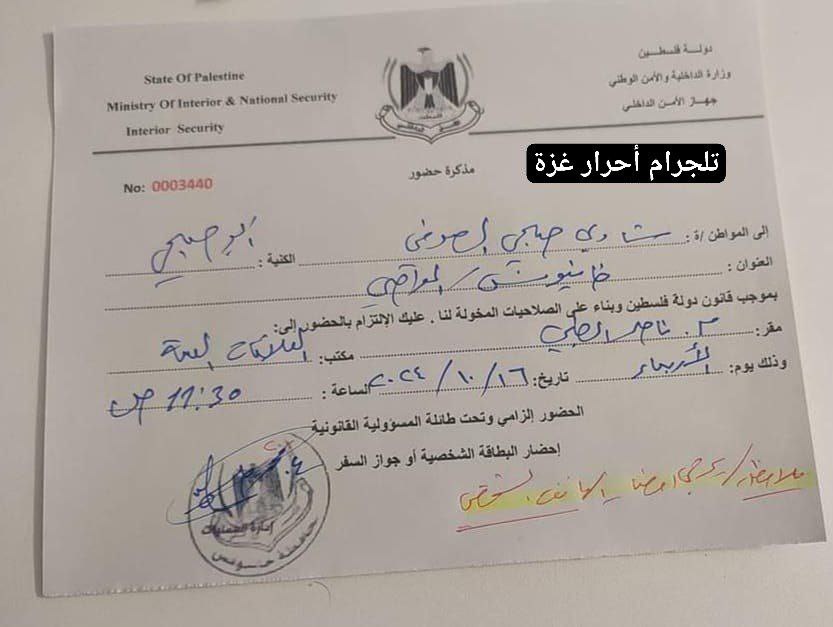 State Of Palestine
Ministry Of Interior & National Security
Interior Security
دولة فلسطين
وزارة الداخلية والأمن الوطني
جهاز الأمن الداخلي
تلجرام أحرار غزة
مذكرة حضور
No: 0003440
إلى المواطن /ة : شادي صبحي الصوفي الكنية : ابو صبحي
العنوان : خانيونس / المواصي
بموجب قانون دولة فلسطين وبناء على الصلاحيات المخولة لنا . عليك الإلتزام بالحضور إلى:
مقر: م. ناصر الطبي مكتب: العلاقات العامة
وذلك يوم: الأربعاء تاريخ: ١٦ / ١٠ / ٢٠٢٤ الساعة : 11:30 ص
الحضور إلزامي وتحت طائلة المسؤولية القانونية
إحضار البطاقة الشخصية أو جواز السفر
ملاحظة / يرجى احضار الهاتف الشخصي
إدارة العمليات
محافظة خانيونس